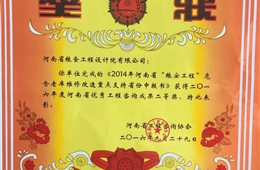 奖状
河南省粮食工程设计院有限公司：
你单位完成的《2014年河南省“粮安工程”危
仓老库维修改造重点支持省份申报书》获得二〇一
六年度河南省优秀工程咨询成果二等奖，特此表
彰。
河南省工程咨询协会
二〇一六年九月二十九日